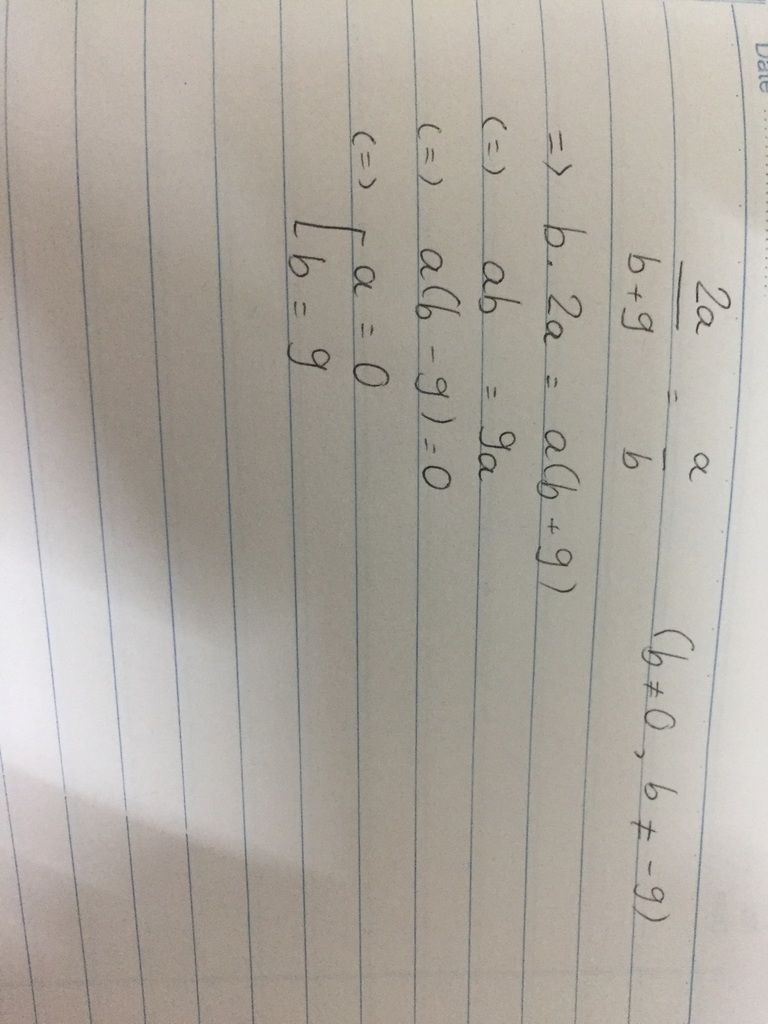 Date
2a/(b+9) = a/b (b ≠ 0, b ≠ -9)
=> b. 2a = a(b + 9)
(=) ab = 9a
(=) a(b - 9) = 0
(=) [ a = 0
b = 9